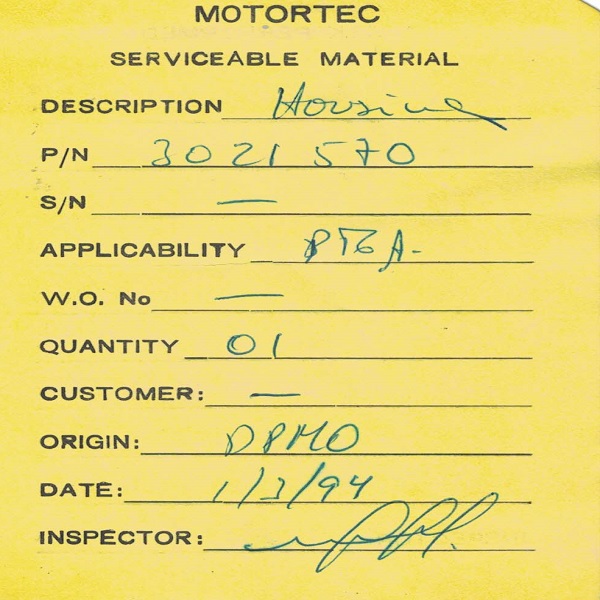 MOTORTEC
SERVICEABLE MATERIAL
DESCRIPTION Housing
P/N 3021570
S/N —
APPLICABILITY PT6A-
W.O. No —
QUANTITY 01
CUSTOMER: —
ORIGIN: DPMO
DATE: 1/3/94
INSPECTOR: